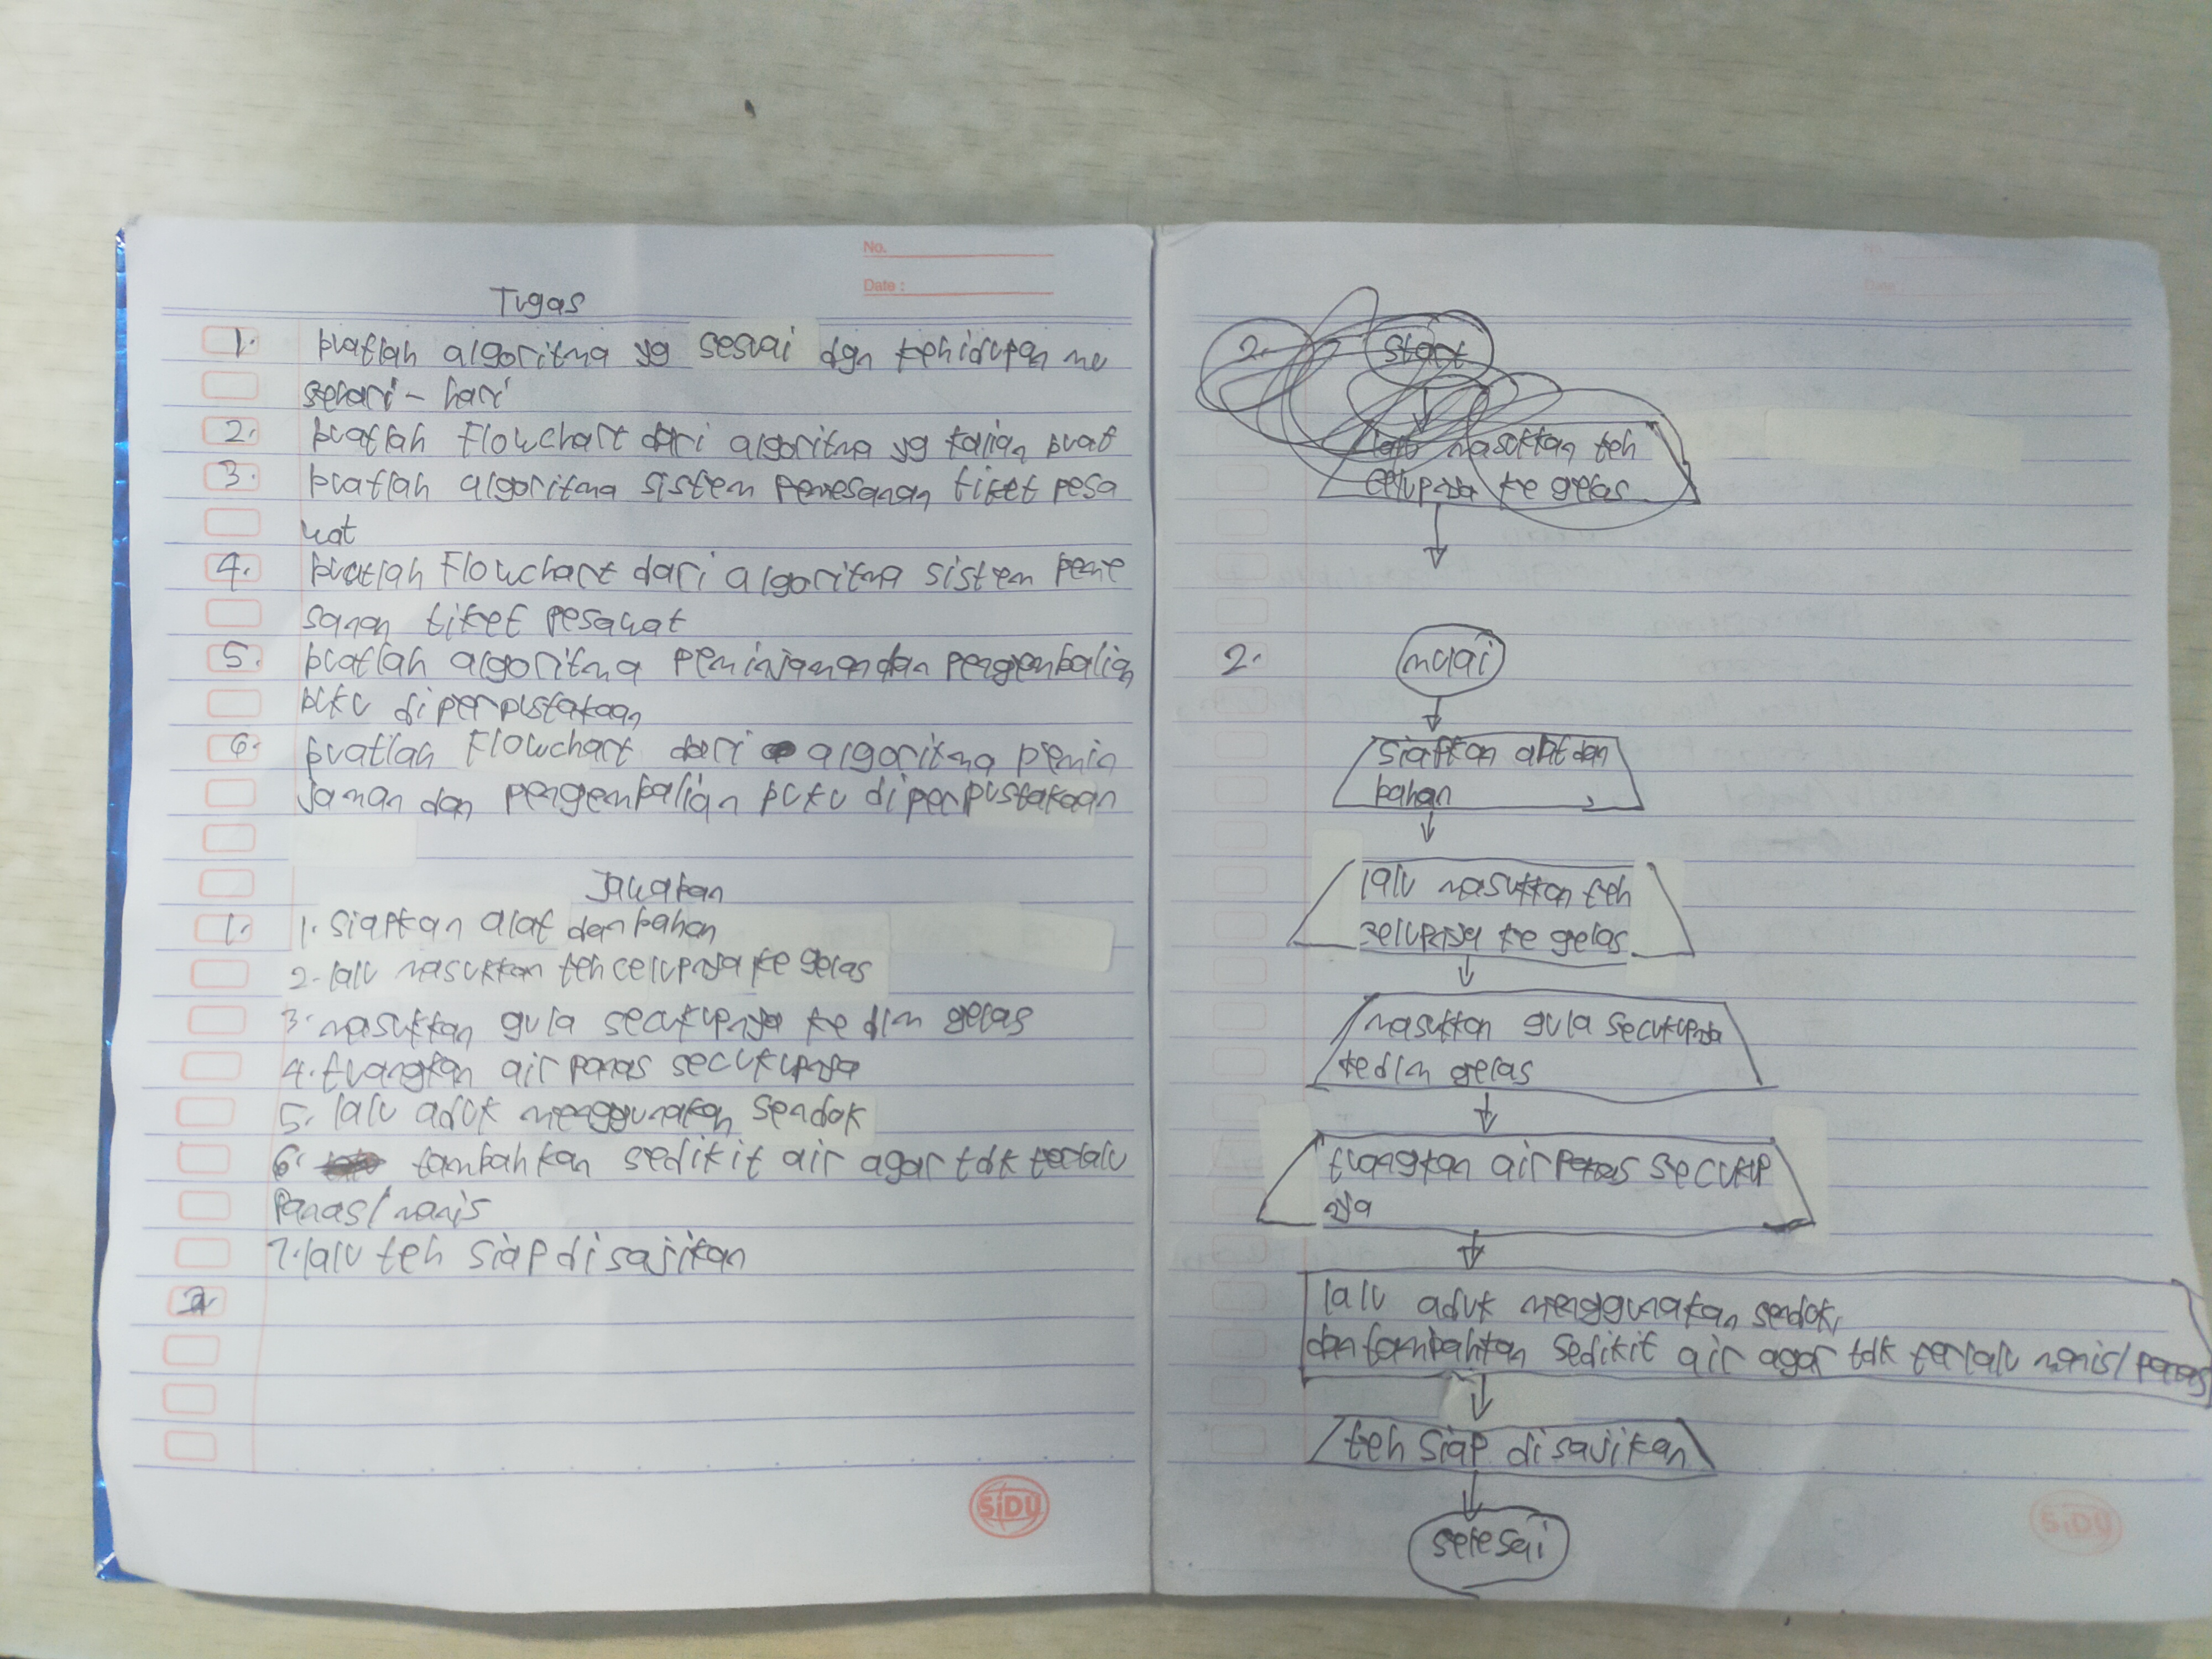 No.
Date :
Tugas
1. buatlah algoritma yg sesuai dgn kehidupan mu
sehari - hari
2. buatlah Flowchart dari algoritma yg kalian buat
3. buatlah algoritma sistem pemesanan tiket pesa
wat
4. buatlah Flowchart dari algoritma sistem peme
sanan tiket pesawat
5. buatlah algoritma peminjaman dan pengembalian
buku diperpustakaan
6. buatlah Flowchart dari algoritma pemin
jaman dan pengembalian buku diperpustakaan
Jawaban
1. 1. siapkan alat dan bahan
2. lalu masukkan teh celupnya ke gelas
3. masukkan gula secukupnya ke dlm gelas
4. tuangkan air panas secukupnya
5. lalu aduk menggunakan sendok
6. tambahkan sedikit air agar tdk terlalu
panas/manis
7. lalu teh siap disajikan
2
SiDU
2. start
lalu masukkan teh
celupnya ke gelas
2. mulai
siapkan alat dan
bahan
lalu masukkan teh
celupnya ke gelas
masukkan gula secukupnya
kedlm gelas
tuangkan air panas secukup
nya
lalu aduk menggunakan sendok,
dan tambahkan sedikit air agar tdk terlalu manis/panas
teh siap disajikan
selesai
SiDU